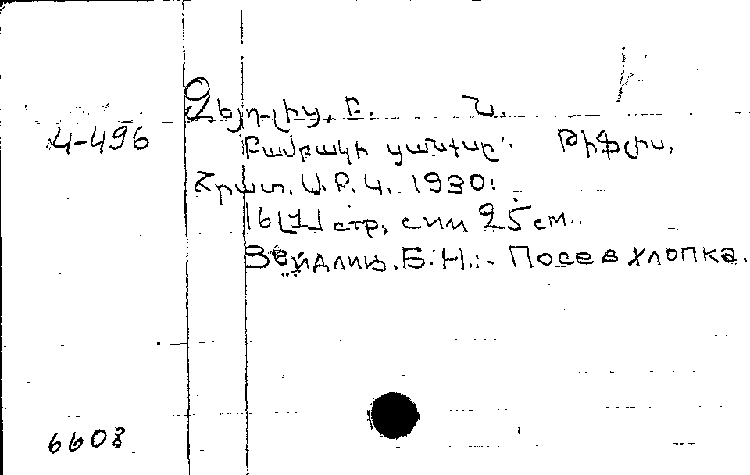 Զեյդլից, Բ. Ն.
4-496
Բամբակի ցանքսը: Թիֆլիս,
Հրատ. Ա.Բ.Կ. 1930:
16[1] стр, с илл 25 см.
Зейдлиц. Б. Н.:- Посев хлопка.
6608